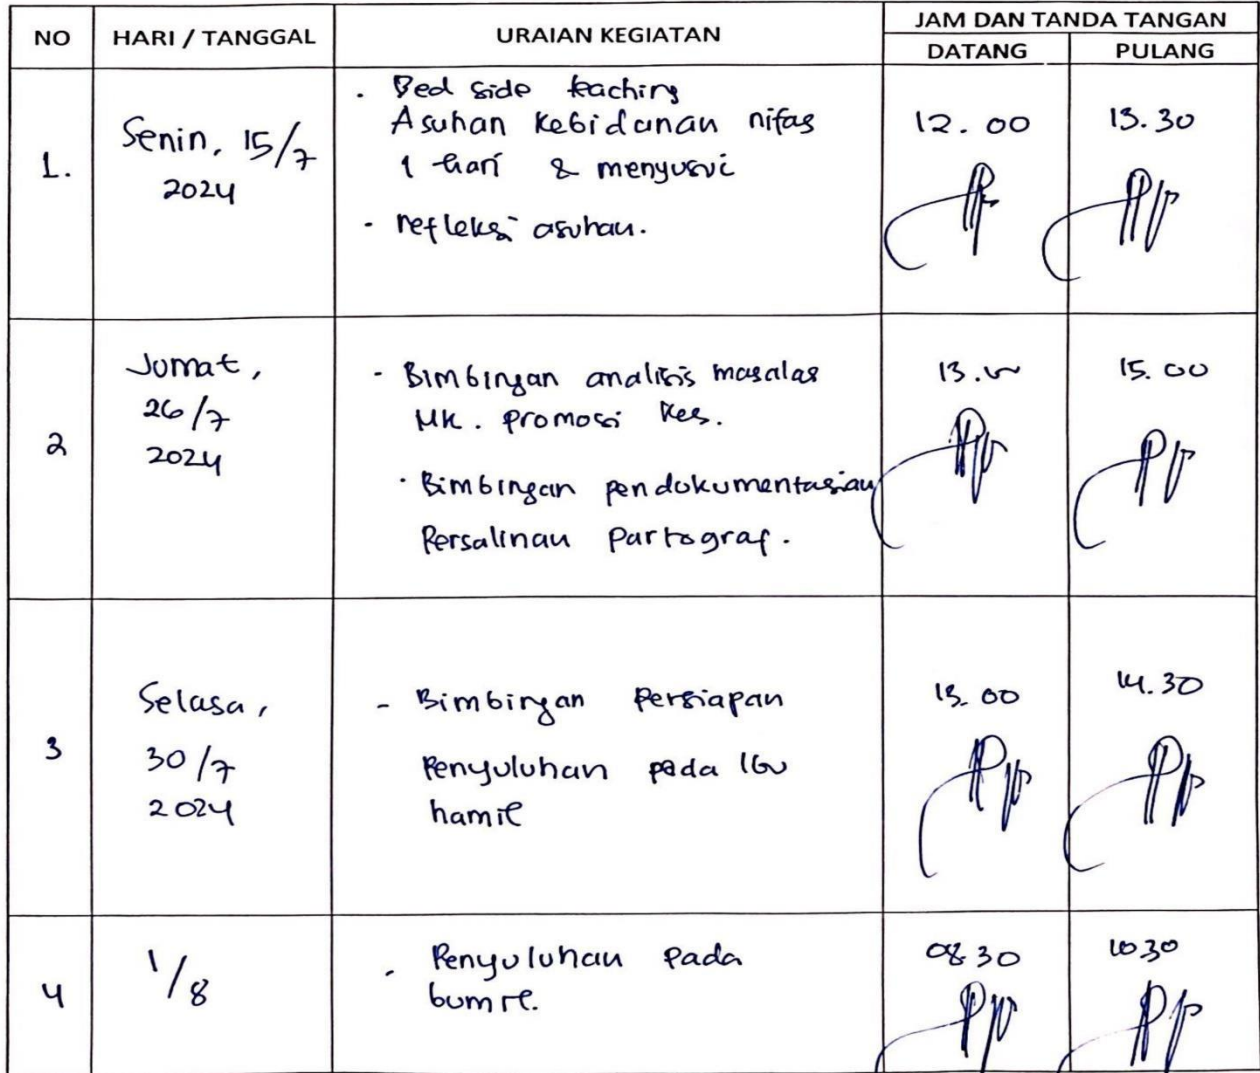 NO HARI / TANGGAL URAIAN KEGIATAN JAM DAN TANDA TANGAN
DATANG PULANG
1.
Senin, 15/7
2024
. Bed side teaching
Asuhan Kebidanan nifas
1 hari & menyusui
- refleksi asuhan.
12.00
13.30
2
Jumat,
26/7
2024
- Bimbingan analisis masalas
Mk. promosi Kes.
. Bimbingan pendokumentasian
Persalinan Partograf.
13.00
15.00
3
Selasa,
30/7
2024
- Bimbingan Persiapan
Penyuluhan pada Ibu
hamil
13.00
14.30
4
1/8
- Penyuluhan pada
bumil.
08.30
10.30